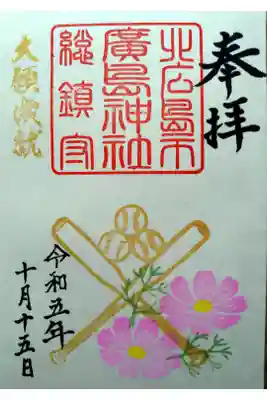 奉拝
北広島市
廣島神社
総鎮守
大願成就
令和五年
十月十五日